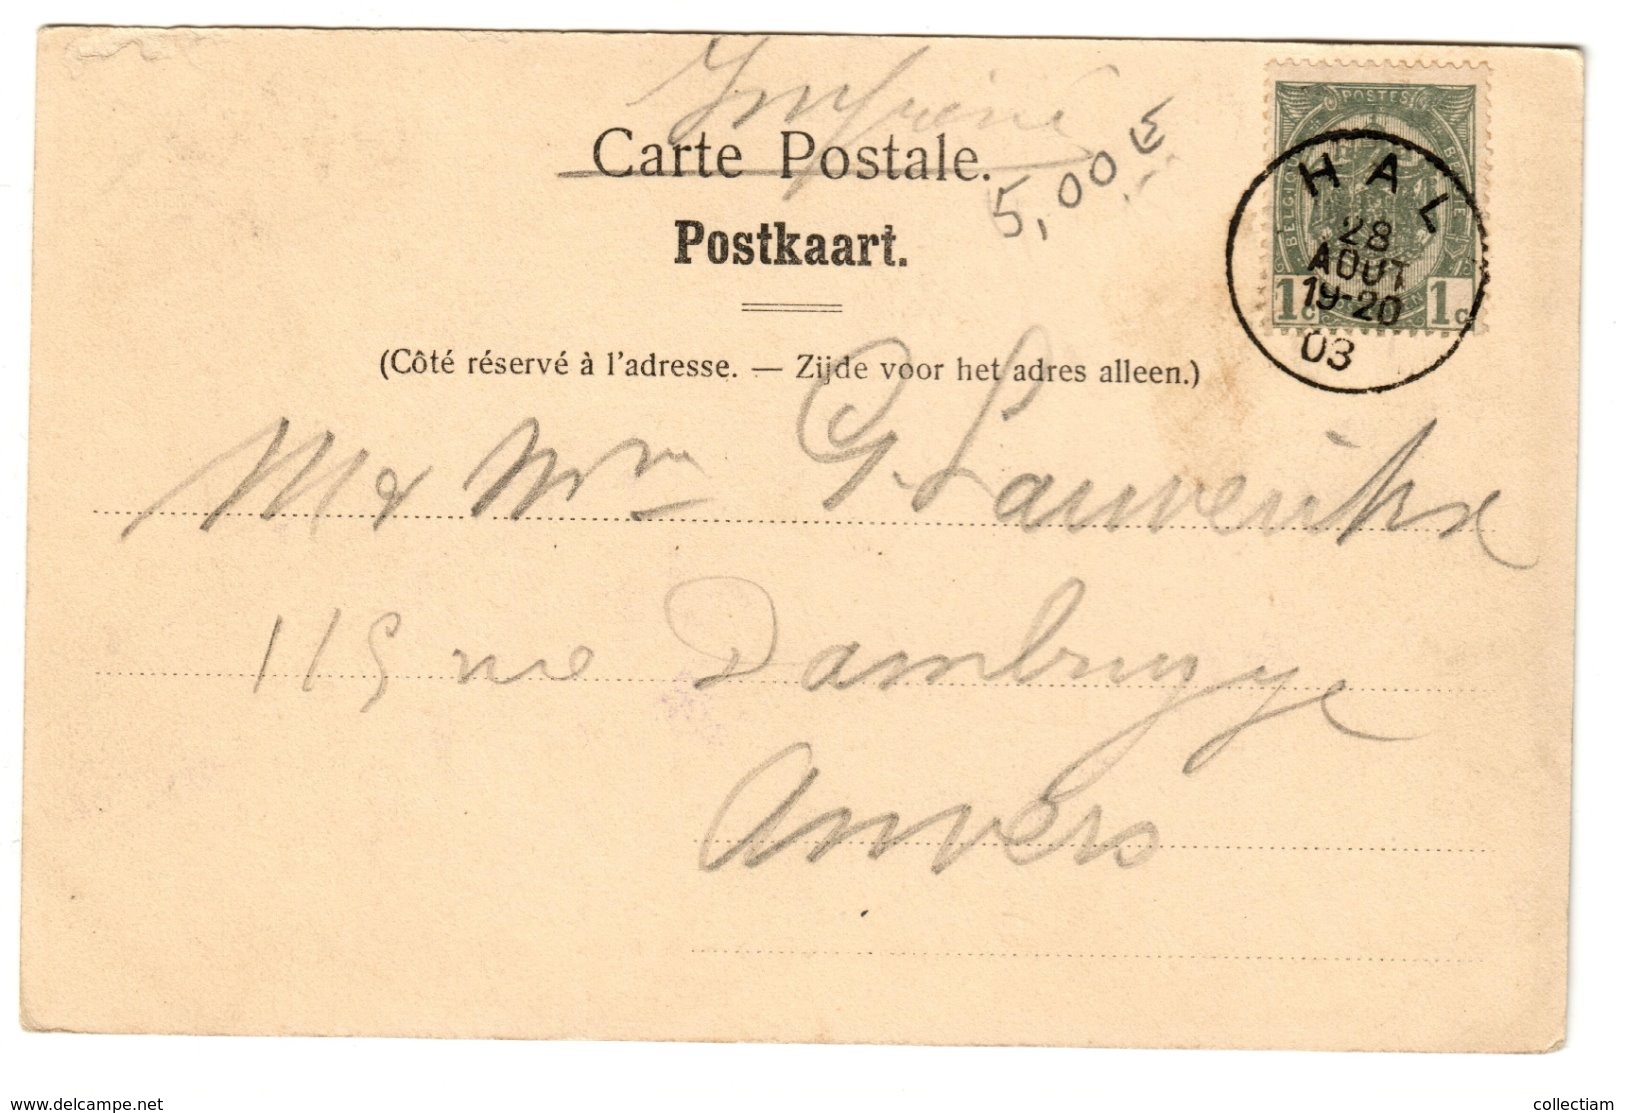 Imprimé
Carte Postale.
5,00 €
Postkaart.
POSTES
BELGIQUE
BELGIË
1c 1c
HAL
28
AOUT
19-20
03
(Côté réservé à l'adresse. — Zijde voor het adres alleen.)
M & Mme G.
115 rue Dambruyge
Anvers
www.delcampe.net
collectiam